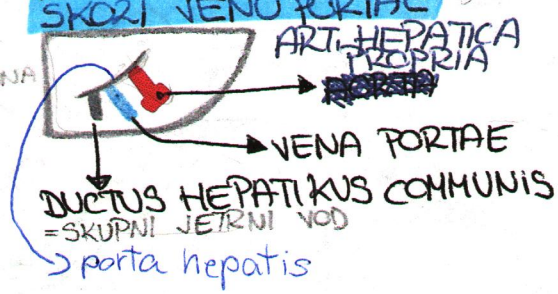 SKOZI VENO PORTAE
ARTI. HEPATICA
PROPRIA
NA
VENA PORTAE
DUCTUS HEPATIKUS COMMUNIS
=SKUPNI JETRNI VOD
porta hepatis